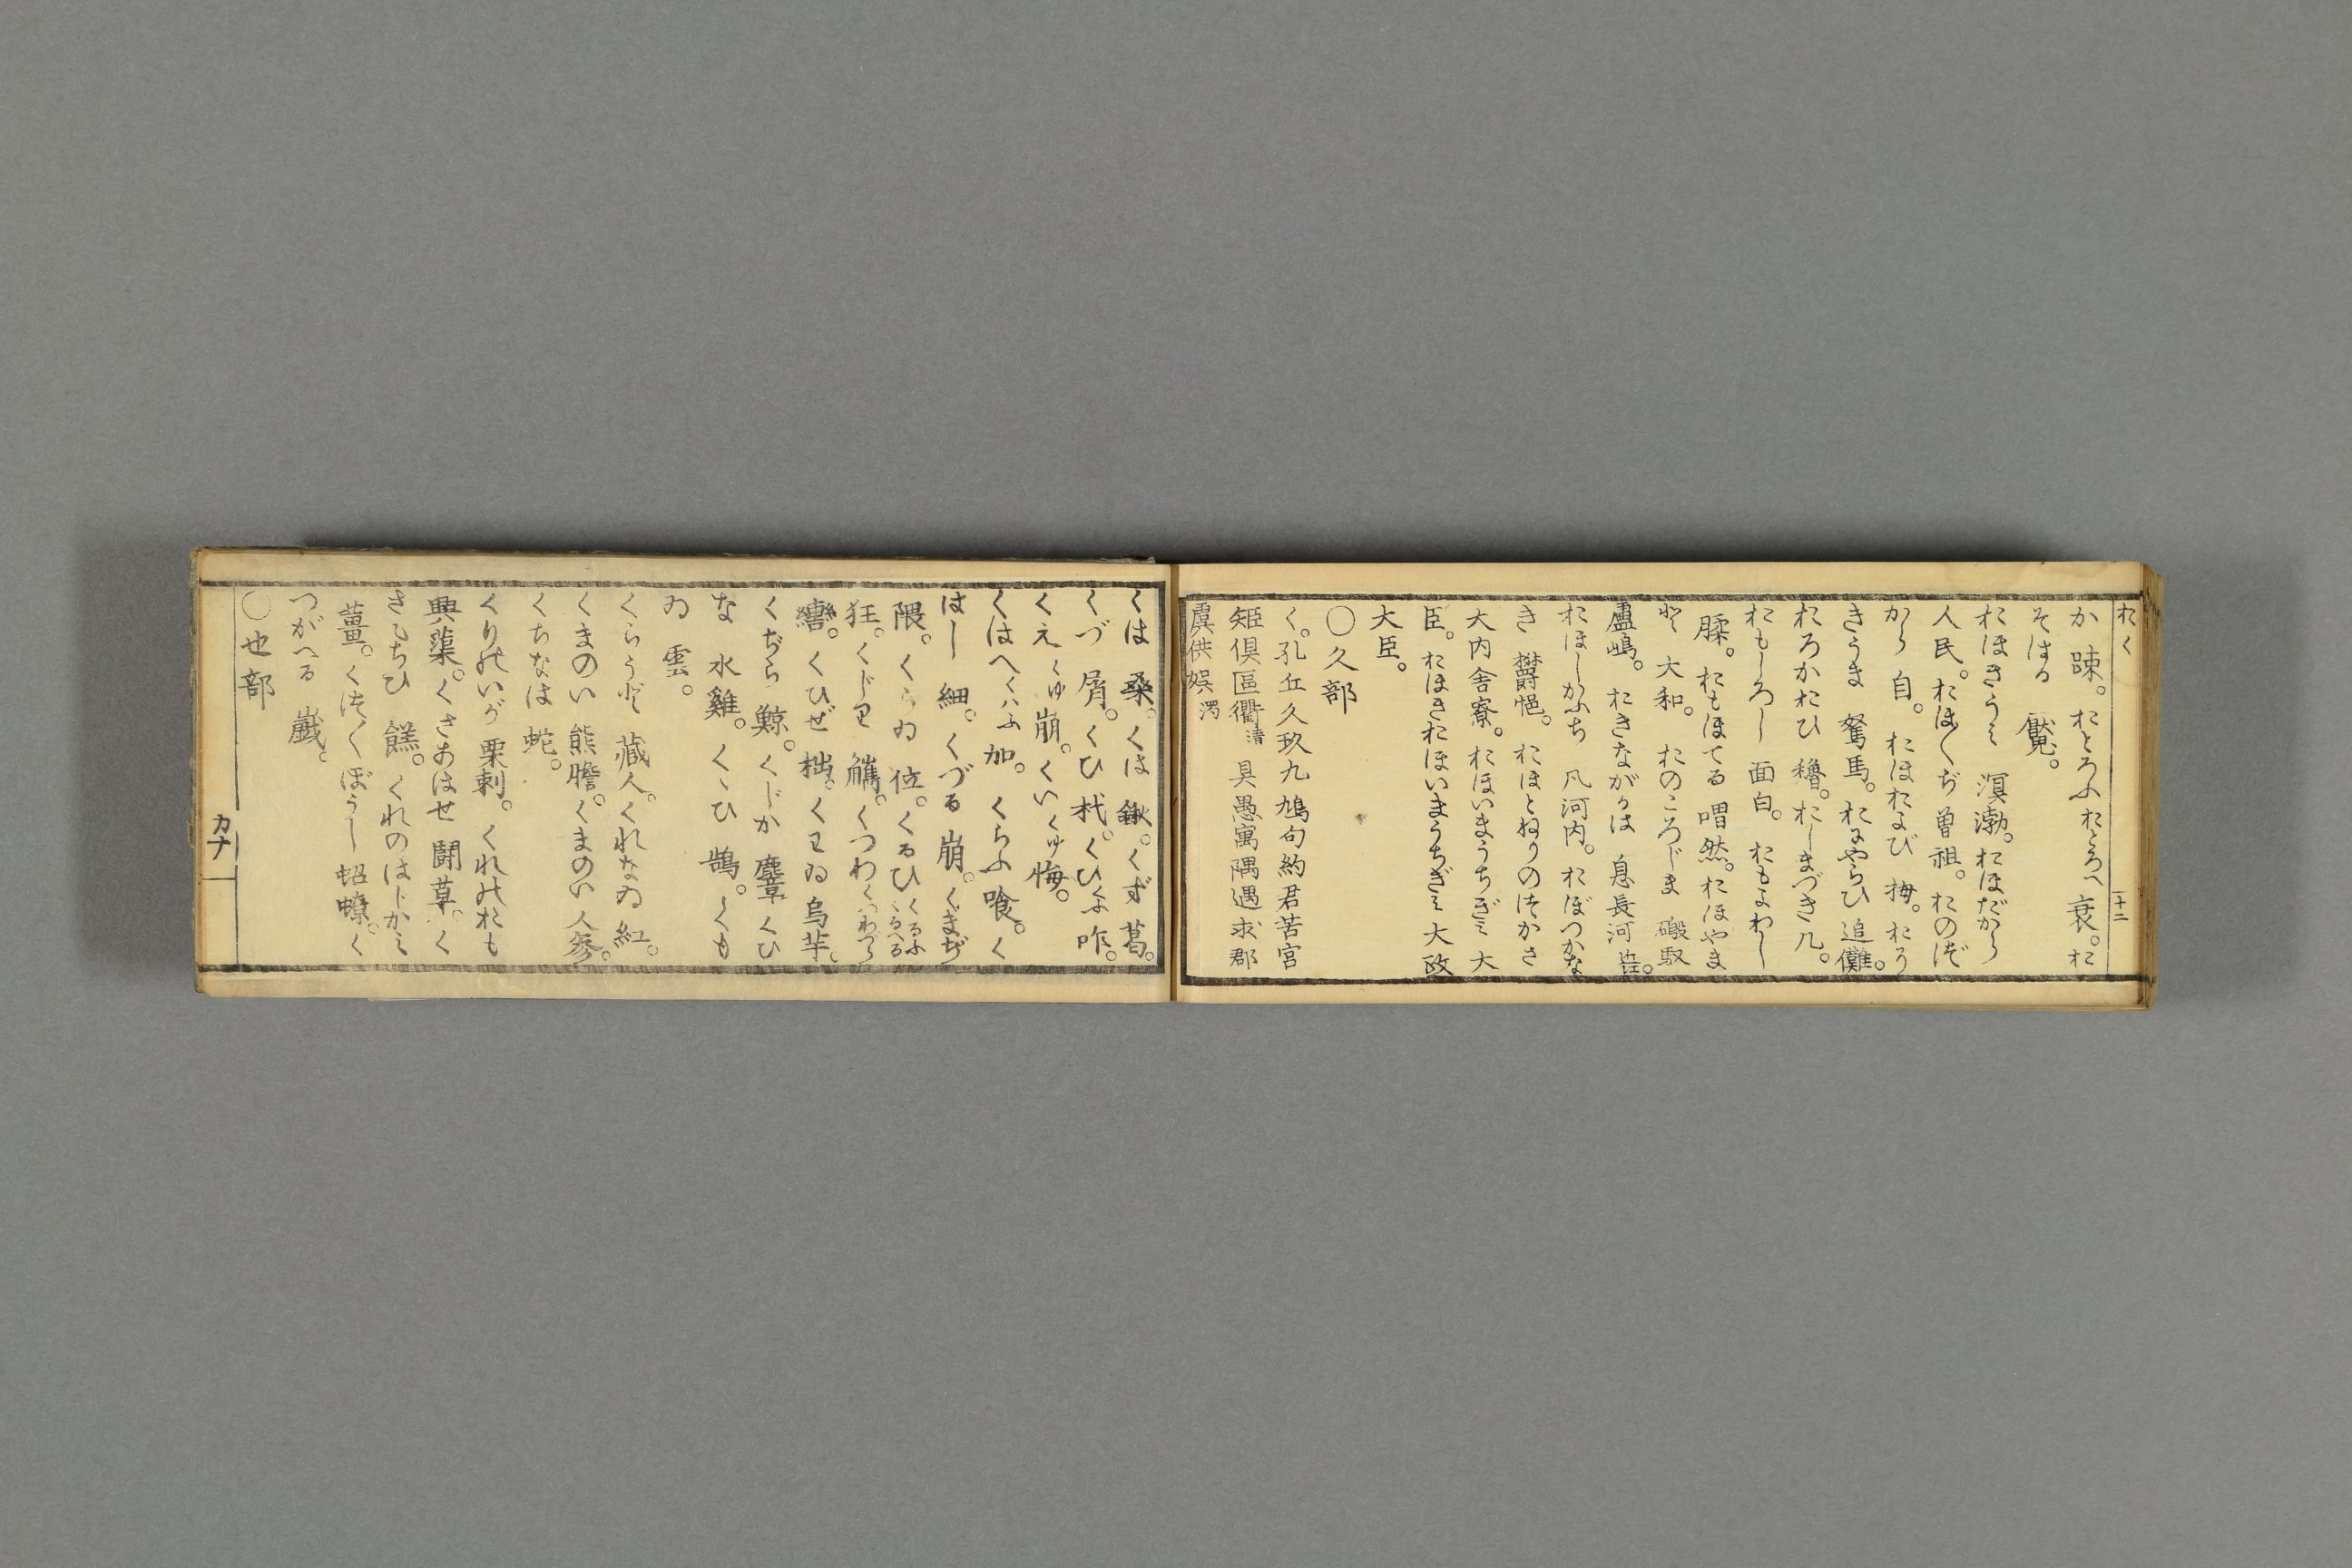 おく
十二
か 踈。おとろふ おとろへ 衰。お
そはる 魘。
おほきうミ 溟渤。おほだから
人民。おほ〱ぢ 曽祖。おのづ
から 自。おほおよび 拇。おう
きうま 駑馬。おにやらひ 追儺。
おろかおひ 穭。おしまづき 几。
おもしろし 面白。おもよわし
腬。おもほてる 喟然。おほやま
と 大和。おのころじま 磤馭
盧嶋。おきながゝは 息長河
おほしかふち 凡河内。おぼつかな
き 欝悒。おほとねりのつかさ
大内舎寮。おほいまうちぎミ 大
臣。おほきおほいまうちぎミ 大政
大臣。
〇久部
く。孔丘久玖九鳩句約君苦宮
矩倶區衢清 具愚寓隅遇求郡
虞供娯濁
くは 桑。くは 鍬。くず 葛。
くづ 屑。くひ 杙。くひふ 咋。
くえ くゆ 崩。くい くゆ 悔。
くはへ くハふ 加。くらふ 喰。く
はし 細。くづる 崩。くまぢ
隈。くらゐ 位。くるひ くるふ くるへる
狂。くじり 觿。くつわ くつわづら
轡。くひぜ 株。くわゐ 烏芋。
くぢら 鯨。くじか 麞 くひ
な 水雞。くゝひ 鵠。くも
ゐ 雲。
くらうど 藏人。くれなゐ 紅。
くまのい 熊膽。くまのい 人參。
くちなは 蛇。
くりのいが 栗刺。くれのおも
興蕖。くさあはせ 闘草。く
さもちひ 餻。くれのはじかミ
薑。くつ〱ぼうし 蛁蟟。く
つがへる 巇。
〇也部
カナ